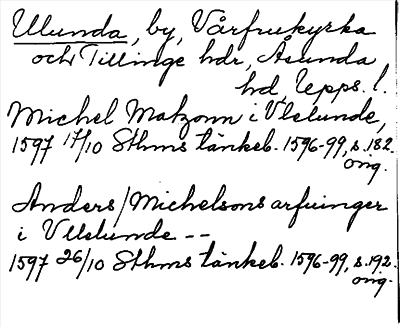 Ulunda, by, Vårfrukyrka
och Tillinge hdr, Åsunda
hd, Upps. l.
Michel Matzonn i Vlslunde,
1597 17/10 Sthms tänkeb. 1596-99, s. 182.
orig.
Anders / Michelsons arfuinger
i Vllslunde --
1597 26/10 Sthms tänkeb. 1596-99, s. 192.
orig.